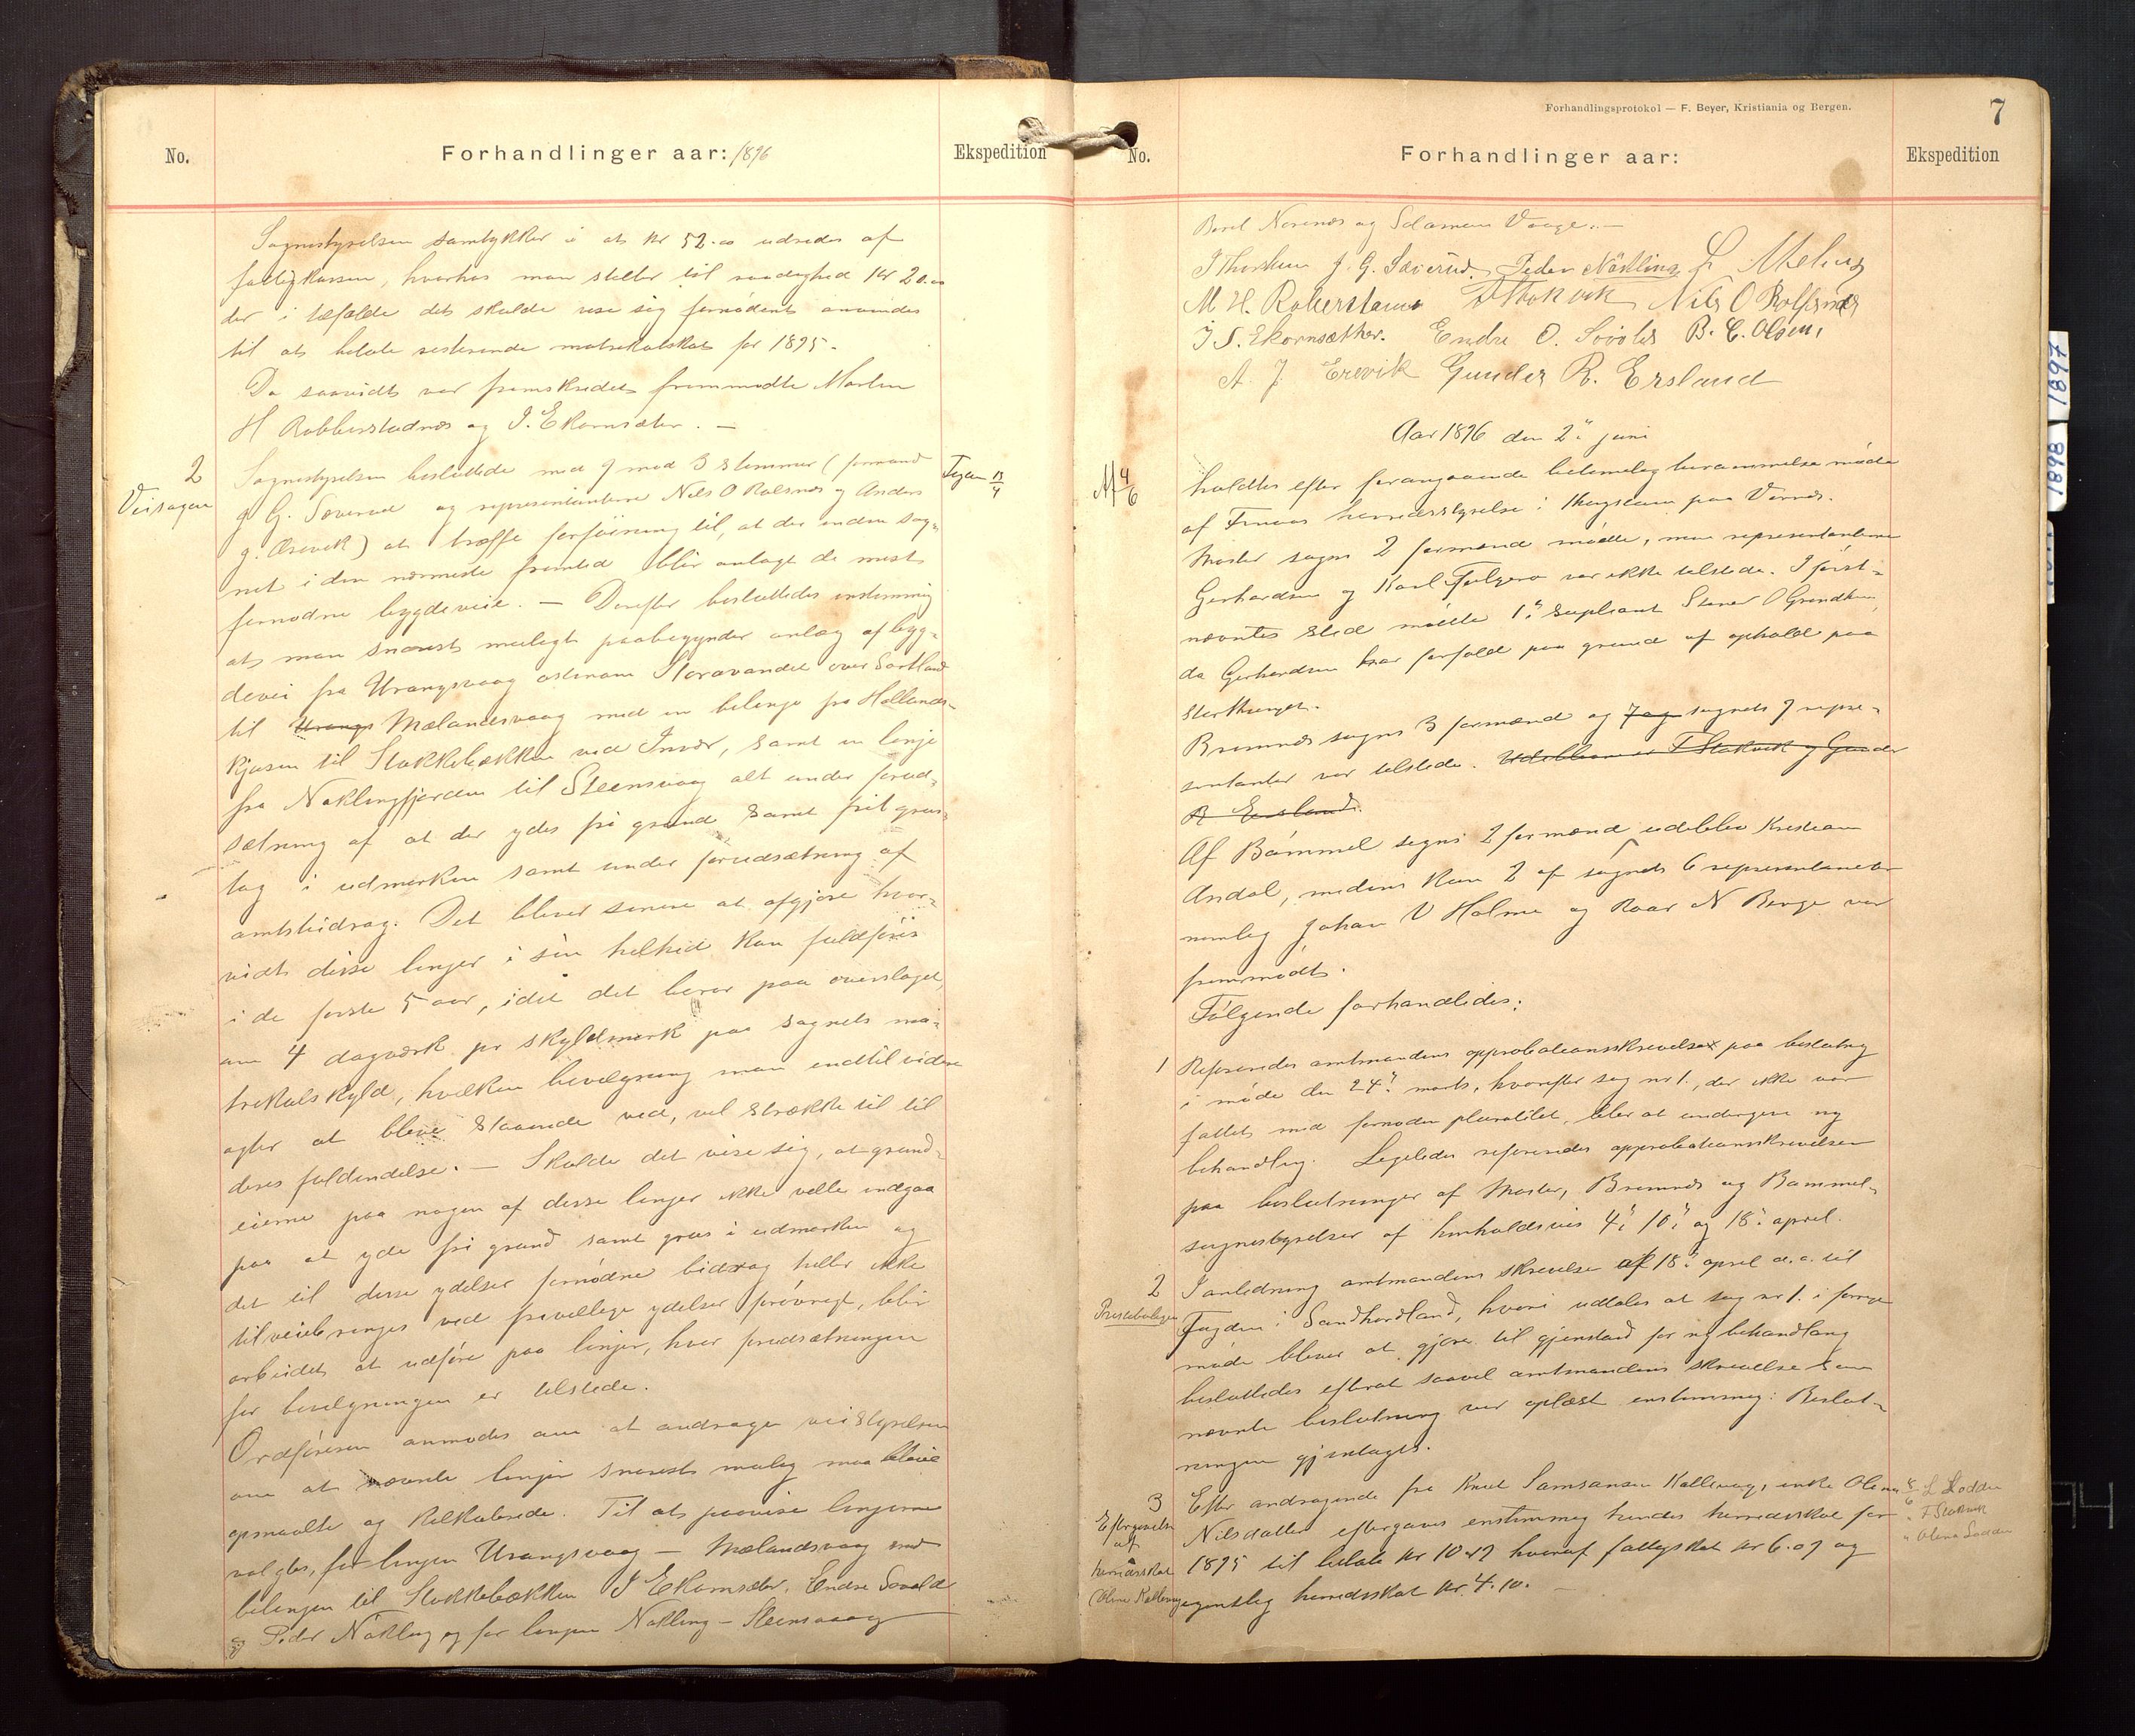 No.
Forhandlinger aar: 1896
Ekspedition
Sognestyrelsen samtykker i at kr 52.00 udredes af
fattigkassen, hvorhos man stiller til raadighed kr 20.00
der i tefælde det skulde vise sig fornødent anvendes
til at betale resterende matrikulskat for 1895.
Da saavidt var fremskredet fremmødte Morten
H Robberstadnes og J. Ekornsæter. –
2
Veisagen
Sognestyrelsen besluttede med 7 mod 3 stemmer (formand
J G. Sæverud og representanterne Nils O Rolfsnes og Anders
J. Ærevik) at træffe forføining til, at der inden sog-
net i den nærmeste fremtid blir anlagt de mest
fornødne bygdeveie. – Derefter besluttedes enstemmig
at man snarest muligt paabegynder anlæg af byg-
devei fra Urangsvaag ostenom Storavandet over Sortland
til Urangs Mælandsvaag med en bilinge fra Hollands-
kjosen til Stokkebækken ved Innvær, samt en linje
fra Nøklingfjorden til Steensvaag alt under forud-
sætning af at der ydes fri grund samt frit grus-
tag i udmarken samt under forudsætning af
amtsbidrag. Det bliver senere at afgjøre hvor-
vidt disse linjer i sin helhed kan fuldføres
i de første 5 aar, idet det beror paa overslaget,
om 4 dagværk pr skyldmark paa sognets ma-
trikulskyld, hvilken bevilgning man indtil videre
agter at blive staaende ved, vil strække til til
deres fuldendelse. – Skulde det vise sig, at grund-
eierne paa nogen af disse linjer ikke ville indgaa
paa at yde fri grund samt grus i udmarken og
det til disse ydelser fornødne bidrag heller ikke
tilveiebringes ved frivillige ydelser forøvrigt, blir
arbeidet at udføre paa linjer, hvor forudsætningen
for bevilgningen er tilstede.
Ordføreren anmodes om at andrage veistyrelsen
om at nævnte linjer snarest mulig maa blive
opmaalte og kalkulerede. Til at paavise linjerne
valgtes, for linjen Urangsvaag – Mælandsvaag med
bilinjen til Stokkebækken J Ekornsæter, Endre Søvold
og Peder Nøkling og for linjen Nøkling – Steensvaag
Fogden 13/4
Forhandlingsprotokol — F. Beyer, Kristiania og Bergen.
7
No.
Forhandlinger aar:
Ekspedition
Berel Norenæs og Salamon Vaage. –
J Thorsen J. G. Sæverud. Peder Nökling L Meling
M H. Roberstanes F Stokvik Nils O Rolfsnes
J S. Ekornsæther. Endre O. Sövold B. C. Olsen,
A. J. Erevik Gunder R. Ersland
Aar 1896 den 2den juni
Af 4/6
holdtes efter forangaaende betimelig berammelse møde
af Finnaas herredsstyrelse i thingstuen paa Vernæs.
Moster sogns 2 formænd mødte, men representanterne
Gerhardsen og Karl Folgerø var ikke tilstede. I først-
nævntes sted mødte 1ste supleant Stener O Grindheim,
da Gerhardsen har forfald paa grund af ophold paa
storthinget.
Bremnes sogns 3 formænd og 7 og sognets 7 repre-
sentanter var tilstede. Udebleven er F Stokvik og Gunder
R Ersland.
Af Bømmel sogns 2 formænd udeblev Kristian
Andal, medens kun 2 af sognets 6 representanter
nemlig Johan V Holme og Roar N Berge var
fremmødt.
Følgende forhandledes:
1
Refereredes amtmandens approbationsskrivelse paa beslutning
i møde den 24de marts, hvorefter sag nr 1, der ikke var
fattet med fornøden pluralitet, blir at undergive ny
behandling. Ligeledes refereredes approbationsskrivelsen
paa beslutninger af Moster, Bremnes og Bømmel-
sognestyrelser af henholdsvis 4de, 10de og 18de april.
2
Prestebolig
I anledning amtmandens skrivelse af 18de april d.a. til
Fogden i Søndhordland, hvori udtales at sag nr 1. i forrige
møde bliver at gjøre til gjenstand for ny behandling
besluttedes efterat saavel amtmandens skrivelse som
nævnte beslutning var oplæst enstemmig: Beslut-
ningen gjentages.
3
Eftergivelse
af
herredsskat
Oline Kallevaag
Efter andragende fra Knud Samsonsen Kallevaag, enke Olena
Nilsdatter eftergaves enstemmig hendes herredsskat for
1895 til beløb kr 10.17 hvoraf fattigskat kr 6.07 og
egentlig herredsskat kr. 4.10. –
5/6 L Lodden
" F Stokvik
" Olena Lodden
1897
1898